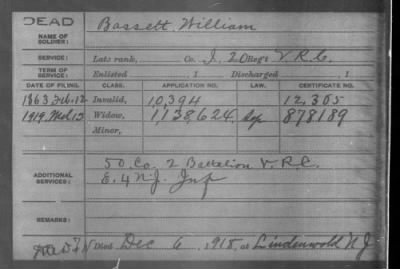 DEAD
NAME OF SOLDIER: Bassett, William
SERVICE: Late rank, Co. I, 20 Reg't V.R.C.
TERM OF SERVICE: Enlisted , 1 Discharged , 1
DATE OF FILING. CLASS. APPLICATION NO. LAW. CERTIFICATE NO.
1863 Feb. 12 Invalid, 10,394 12,305
1919 Mch 13 Widow, 1,138,624 Sep 878189
Minor,
ADDITIONAL SERVICES: 50. Co. 2 Battalion V.R.C.
E. 4 N.J. Inf
REMARKS:
Died Dec 6, 1918, at Lindenwold N J